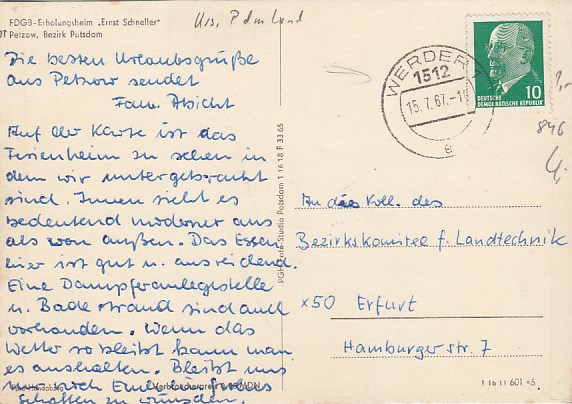 FDGB-Erholungsheim „Ernst Schneller"
Petzow, Bezirk Potsdam
Die besten Urlaubsgrüße
aus Petzow sendet
Fam. Absicht
Auf der Karte ist das
Ferienheim zu sehen in
dem wir untergebracht
sind. Innen sieht es
bedeutend moderner aus
als von außen. Das Essen
hier ist gut u. ausreichend.
Eine Dampferanlegestelle
u. Badestrand sind auch
vorhanden. Wenn das
Wetter so bleibt kann man
es aushalten. Bleibt uns
nur noch Euch ein
Schaffen zu wünschen.
Verbraucherpreis MDN
PGH Foto-Studio Potsdam 1 16 18 F 33 65
WERDER
1512
15.7.67.-1
e
DEUTSCHE
DEMOKRATISCHE REPUBLIK
10
846
An das Koll. des
Bezirkskomitee f. Landtechnik
x50 Erfurt
Hamburger str. 7
1 16 11 601 45